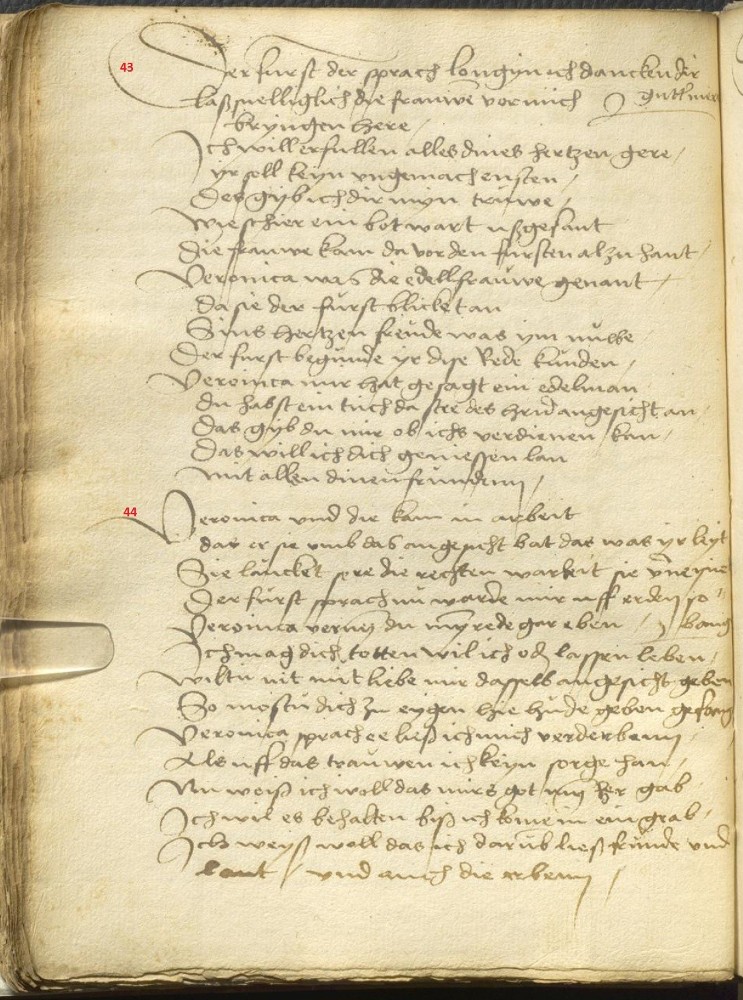 43
Der furst der sprach longyn ich dancken dir
laß snelliglich die frauwe vor mich
bryngen here
Ich will erfullen alles dines hertzen gere
yr soll keyn ungemach ensten
Des gyb ich dir myn truwe
wie schier ein bot wart ußgesant
Die frauwe kam da vor den fursten al zu hant
Veronica was die edell frauwe genant
Da sie der furst blicket an
Sins hertzen freude was ym nuwe
Der furst begunde yr dise Rede kunden
Veronica mir hat gesagt ein edelman
du habst ein tuch da stee des hern angesicht an
Das gyb du mir ob ichs verdienen kan
Das will ich dich geniessen lan
mit allen dinen frunden
44
Veronica und die kam in arbeit
daz er sie umb das angesicht bat das was yr leyt
Sie laucket sere die rechten warheit sie
Der furst sprach nu warde mir uff erden so
Veronica vernym du myn rede gar eben bang
Ich mag dich totten wil ich od lassen leben
wiltu nit mit liebe mir dasselb angesicht geben
So mostu dich zu eygen hie geben
Veronica sprach ee ließ ich mich verderben
Als uff das trauwen ich keyn sorge han
Nu weiß ich woll das mirs got gab
Ich wil es behalten biß ich kome in ein grab
Ich weyß woll das ich darub ließ frunde und
lant und auch die erben